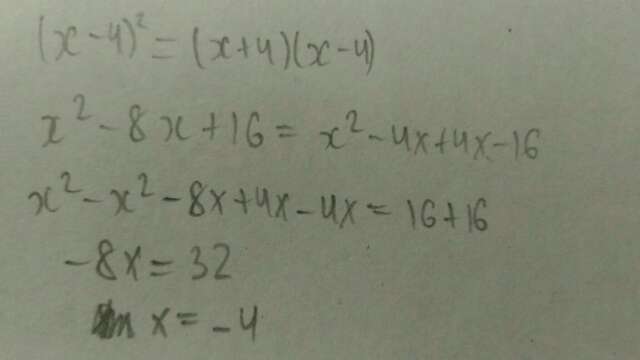 (x-4)² = (x+4)(x-4)
x² - 8x + 16 = x² - 4x + 4x - 16
x² - x² - 8x + 4x - 4x = 16 + 16
-8x = 32
x = -4